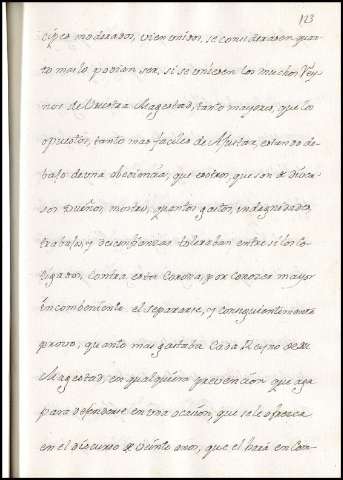 123
cipes moderados, vien unidos, se considerasen quan-
to mas lo podian ser, si se uniesen los muchos Rey-
nos de Vuestra Magestad, tanto mayores, que los
opuestos, tanto mas faciles de Ajustar, estando de-
bajo de una obediencia, que esotros, que son de diver-
sos Dueños, mostro, quantos gastos, indignidades
trabajos, y desconfianzas toleraban entre si los co-
ligados, contra esta Corona, por conocer mayor
incombeniente el separarse, y consiguientemente
provo, quanto mas gastaba Cada Reyno de Vuestra
Magestad, en qualquiera prevencion que aga
para defenderse en una ocasion, que se le ofrezca
en el discurso de veinte años, que el hará en Com-